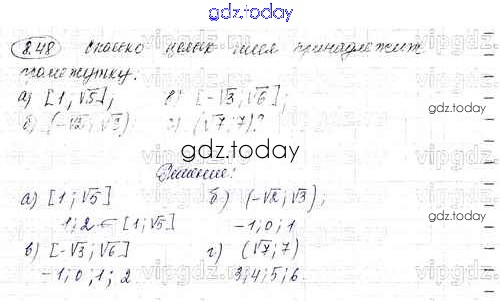 gdz.today
8.48 Сколько целых чисел принадлежит
промежутку.
а) [1; √5]; в) [-√3; √6];
б) (-√2; √3) г) (√7; 7)?
gdz.today
gdz.today
Решение:
а) [1; √5] б) (-√2; √3);
1; 2 ∈ [1; √5] -1; 0; 1
в) [-√3; √6] г) (√7; 7)
-1; 0; 1; 2 3; 4; 5; 6.
gdz.today
gdz.today